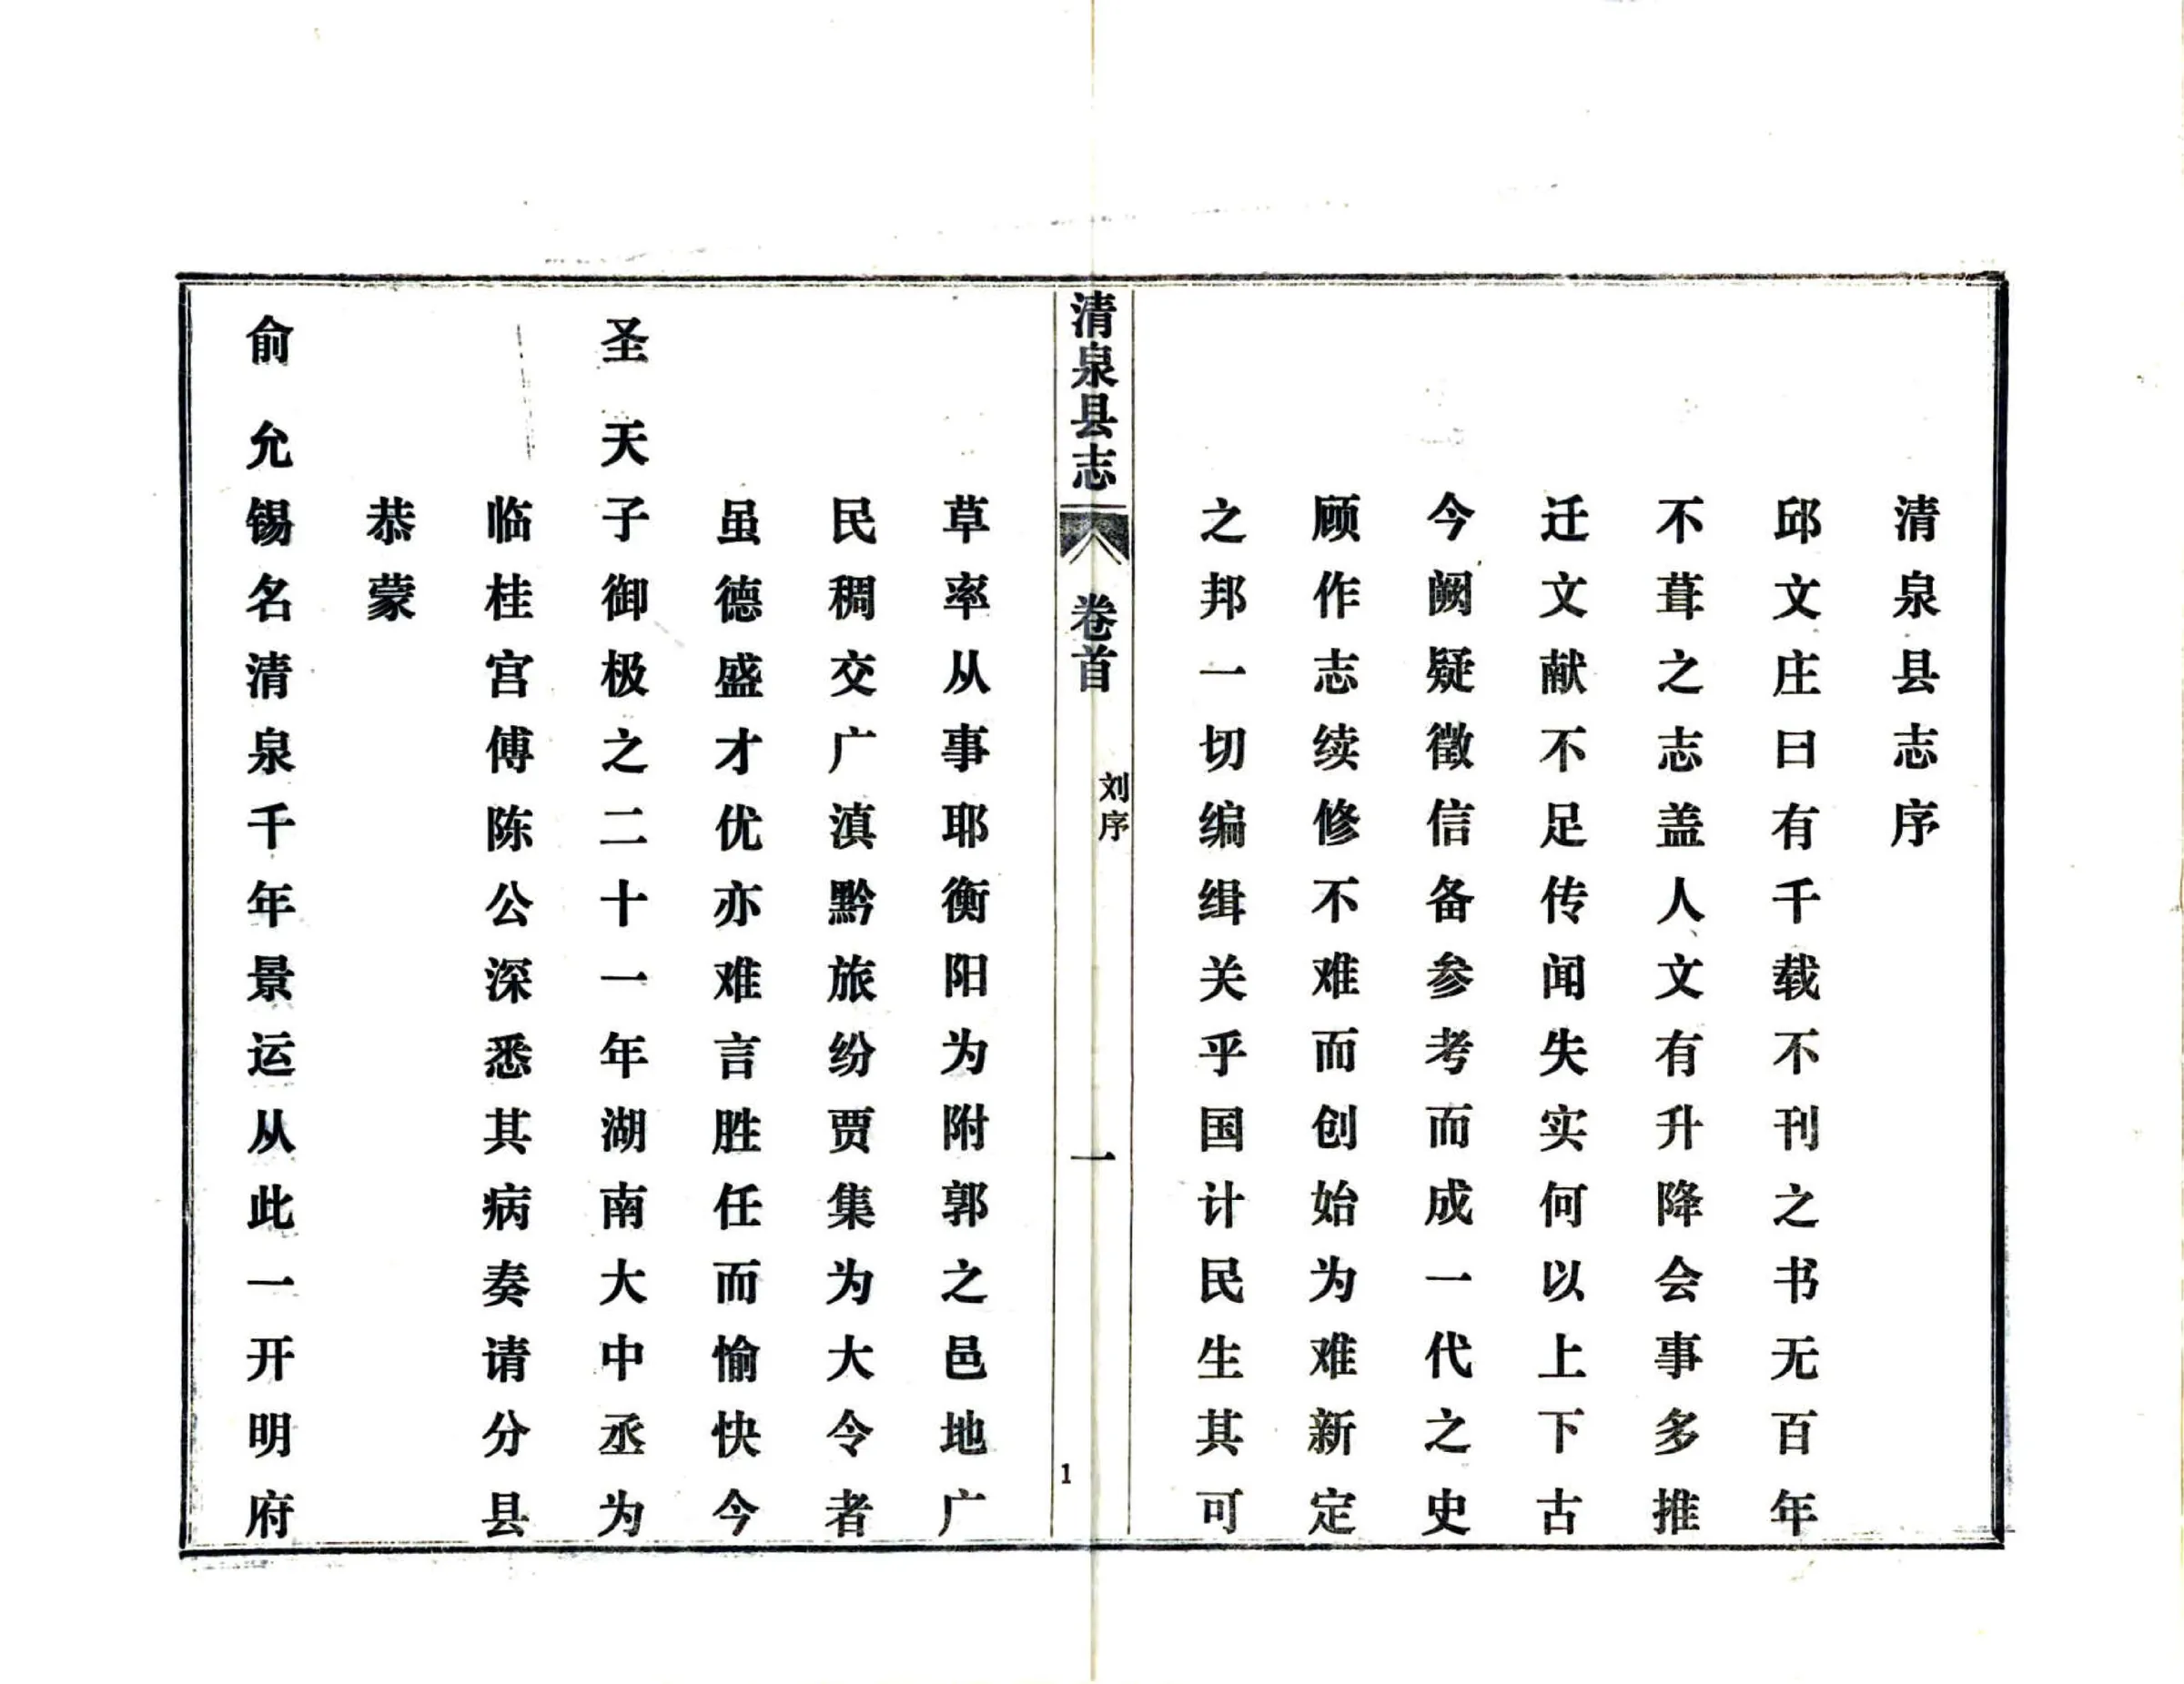 清泉县志序
邱文庄曰有千载不刊之书无百年
不葺之志盖人文有升降会事多推
迁文献不足传闻失实何以上下古
今阙疑徵信备参考而成一代之史
顾作志续修不难而创始为难新定
之邦一切编缉关乎国计民生其可
清泉县志
卷首
刘序
一
1
草率从事耶衡阳为附郭之邑地广
民稠交广滇黔旅纷贾集为大令者
虽德盛才优亦难言胜任而愉快今
圣天子御极之二十一年湖南大中丞为
临桂宫傅陈公深悉其病奏请分县
恭蒙
俞允锡名清泉千年景运从此一开明府